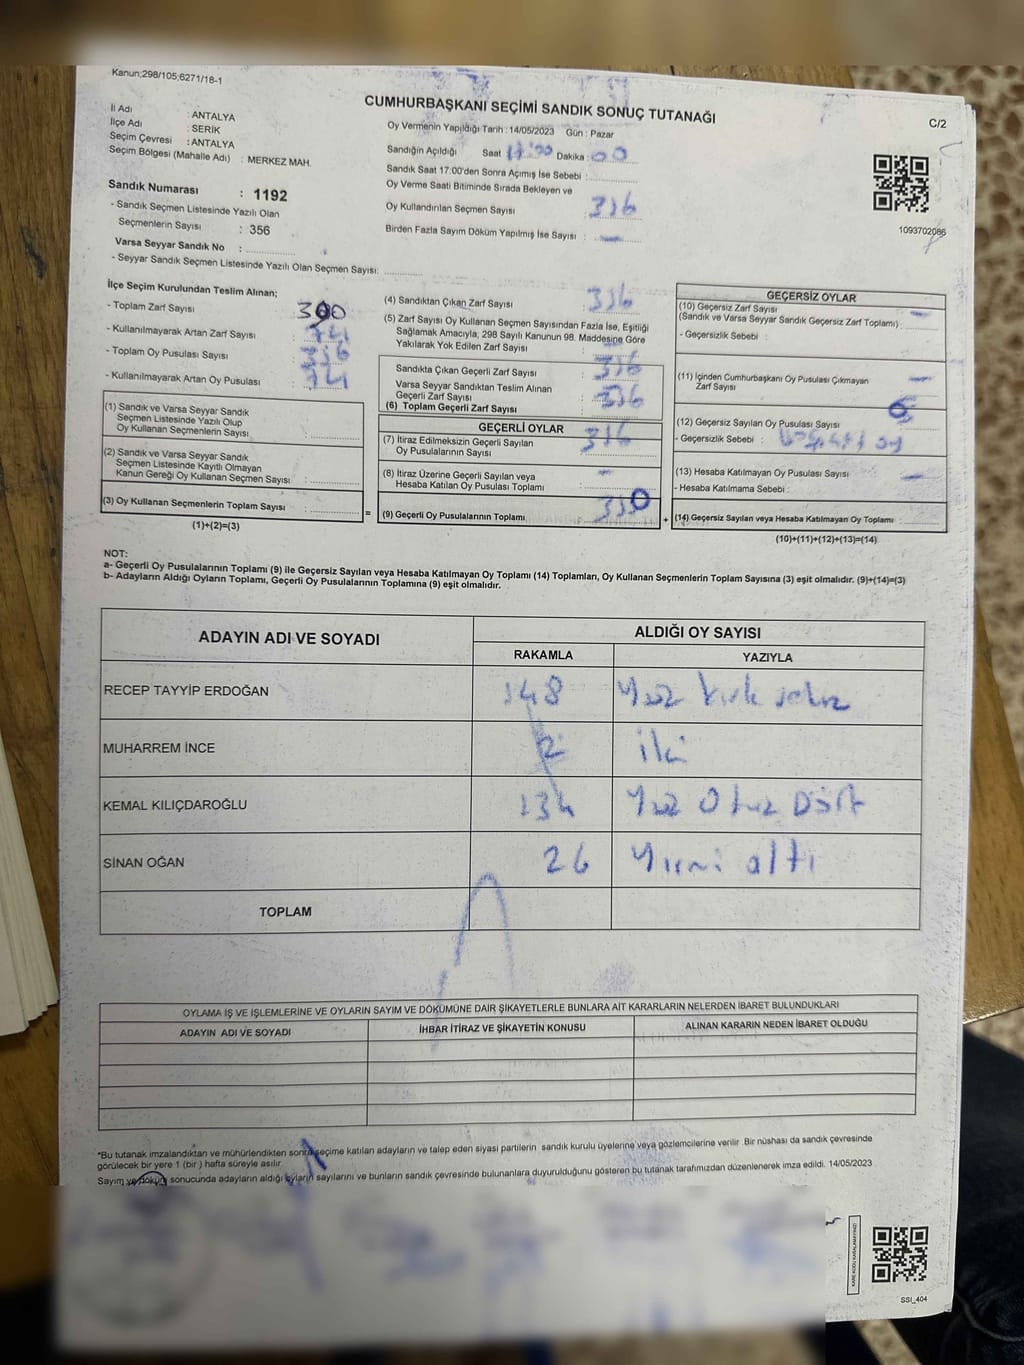 Kanun;298/105;6271/18-1
CUMHURBAŞKANI SEÇİMİ SANDIK SONUÇ TUTANAĞI
C/2
İl Adı : ANTALYA
İlçe Adı : SERİK
Seçim Çevresi : ANTALYA
Seçim Bölgesi (Mahalle Adı) : MERKEZ MAH.
Sandık Numarası : 1192
- Sandık Seçmen Listesinde Yazılı Olan
Seçmenlerin Sayısı : 356
Varsa Seyyar Sandık No :
- Seyyar Sandık Seçmen Listesinde Yazılı Olan Seçmen Sayısı:
Oy Vermenin Yapıldığı Tarih : 14/05/2023 Gün : Pazar
Sandığın Açıldığı Saat 17:00 Dakika : 00
Sandık Saat 17.00'den Sonra Açımış İse Sebebi :
Oy Verme Saati Bitiminde Sırada Bekleyen ve
Oy Kullandırılan Seçmen Sayısı : 316
Birden Fazla Sayım Döküm Yapılmış İse Sayısı : —
1093702086
İlçe Seçim Kurulundan Teslim Alınan;
- Toplam Zarf Sayısı :
- Kullanılmayarak Artan Zarf Sayısı : 74
- Toplam Oy Pusulası Sayısı :
- Kullanılmayarak Artan Oy Pusulası : 74
(1) Sandık ve Varsa Seyyar Sandık
Seçmen Listesinde Yazılı Olup
Oy Kullanan Seçmenlerin Sayısı :
(2) Sandık ve Varsa Seyyar Sandık
Seçmen Listesinde Kayıtlı Olmayan
Kanun Gereği Oy Kullanan Seçmen Sayısı :
(3) Oy Kullanan Seçmenlerin Toplam Sayısı :
(1)+(2)=(3)
=
(4) Sandıktan Çıkan Zarf Sayısı : 316
(5) Zarf Sayısı Oy Kullanan Seçmen Sayısından Fazla İse, Eşitliği
Sağlamak Amacıyla, 298 Sayılı Kanunun 98. Maddesine Göre
Yakılarak Yok Edilen Zarf Sayısı :
Sandıkta Çıkan Geçerli Zarf Sayısı : 316
Varsa Seyyar Sandıktan Teslim Alınan
Geçerli Zarf Sayısı :
(6) Toplam Geçerli Zarf Sayısı : 316
GEÇERLİ OYLAR
(7) İtiraz Edilmeksizin Geçerli Sayılan
Oy Pusulalarının Sayısı : 316
(8) İtiraz Üzerine Geçerli Sayılan veya
Hesaba Katılan Oy Pusulası Toplamı : —
(9) Geçerli Oy Pusulalarının Toplamı 310
+
GEÇERSİZ OYLAR
(10) Geçersiz Zarf Sayısı
(Sandık ve Varsa Seyyar Sandık Geçersiz Zarf Toplamı) : —
- Geçersizlik Sebebi :
(11) İçinden Cumhurbaşkanı Oy Pusulası Çıkmayan
Zarf Sayısı : —
(12) Geçersiz Sayılan Oy Pusulası Sayısı : 6
- Geçersizlik Sebebi : oy
(13) Hesaba Katılmayan Oy Pusulası Sayısı : —
- Hesaba Katılmama Sebebi :
(14) Geçersiz Sayılan veya Hesaba Katılmayan Oy Toplamı :
(10)+(11)+(12)+(13)=(14)
NOT:
a- Geçerli Oy Pusulalarının Toplamı (9) ile Geçersiz Sayılan veya Hesaba Katılmayan Oy Toplamı (14) Toplamları, Oy Kullanan Seçmenlerin Toplam Sayısına (3) eşit olmalıdır. (9)+(14)=(3)
b- Adayların Aldığı Oyların Toplamı, Geçerli Oy Pusulalarının Toplamına (9) eşit olmalıdır.
ADAYIN ADI VE SOYADI ALDIĞI OY SAYISI
RAKAMLA YAZIYLA
RECEP TAYYİP ERDOĞAN 148 Yüz kırk sekiz
MUHARREM İNCE 2 iki
KEMAL KILIÇDAROĞLU 134 Yüz Otuz Dört
SİNAN OĞAN 26 Yirmi altı
TOPLAM
OYLAMA İŞ VE İŞLEMLERİNE VE OYLARIN SAYIM VE DÖKÜMÜNE DAİR ŞİKAYETLERLE BUNLARA AİT KARARLARIN NELERDEN İBARET BULUNDUKLARI
ADAYIN ADI VE SOYADI İHBAR İTİRAZ VE ŞİKAYETİN KONUSU ALINAN KARARIN NEDEN İBARET OLDUĞU
*Bu tutanak imzalandıktan ve mühürlendikten sonra seçime katılan adayların ve talep eden siyasi partilerin sandık kurulu üyelerine veya gözlemcilerine verilir .Bir nüshası da sandık çevresinde
görülecek bir yere 1 (bir ) hafta süreyle asılır.
Sayım ve döküm sonucunda adayların aldığı oyların sayılarını ve bunların sandık çevresinde bulunanlara duyurulduğunu gösteren bu tutanak tarafımızdan düzenlenerek imza edildi. 14/05/2023
KARE KODU KARALAMAYINIZ!
SSI_404